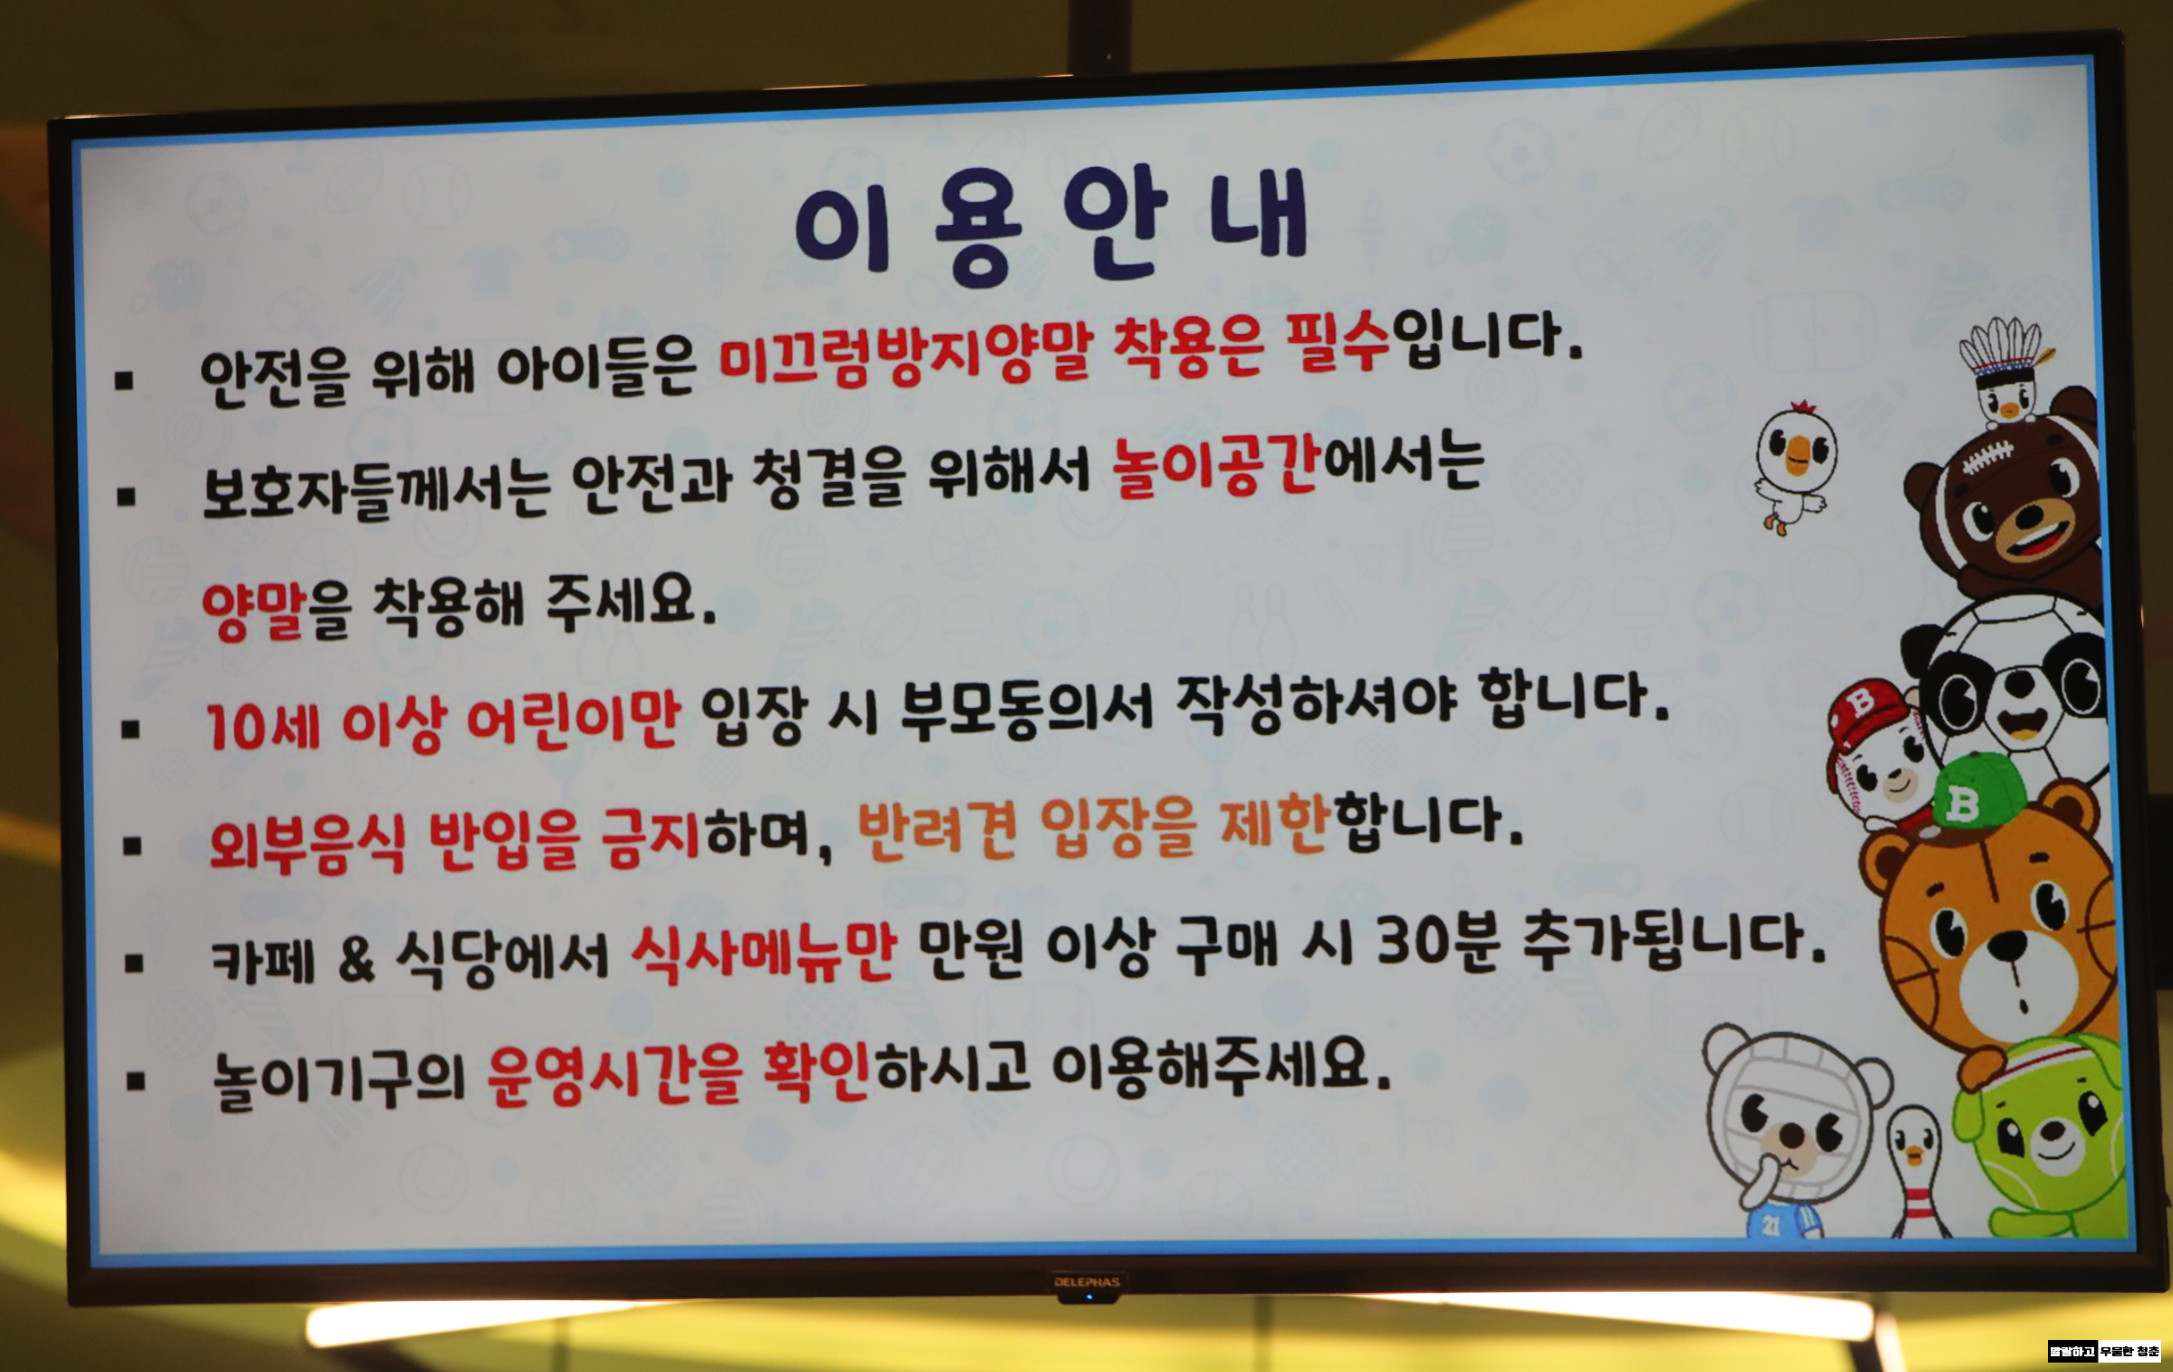 이용안내
▪ 안전을 위해 아이들은 미끄럼방지양말 착용은 필수입니다.
▪ 보호자들께서는 안전과 청결을 위해서 놀이공간에서는
양말을 착용해 주세요.
▪ 10세 이상 어린이만 입장 시 부모동의서 작성하셔야 합니다.
▪ 외부음식 반입을 금지하며, 반려견 입장을 제한합니다.
▪ 카페 & 식당에서 식사메뉴만 만원 이상 구매 시 30분 추가됩니다.
▪ 놀이기구의 운영시간을 확인하시고 이용해주세요.
B
B
21
DELEPHAS
발랄하고 우울한 청춘